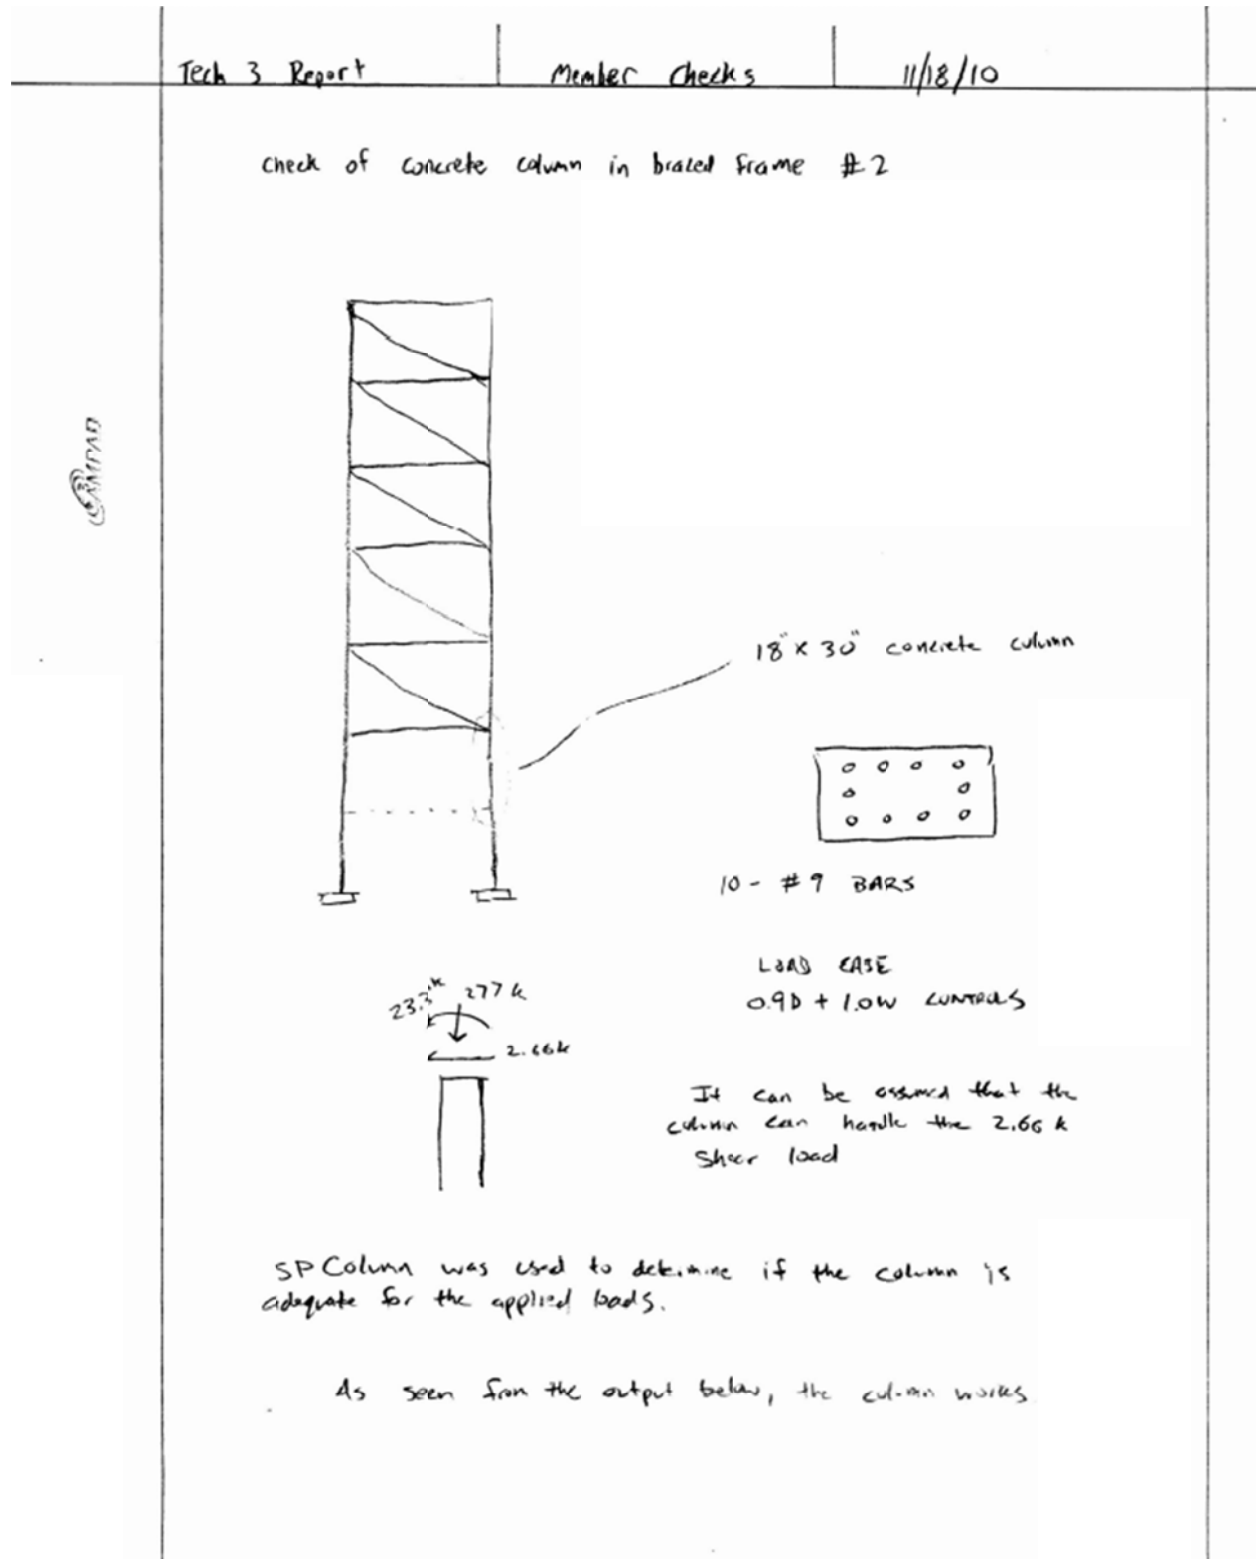 Tech 3 Report
Member Checks
11/18/10
Check of concrete column in braced frame #2
AMPAD
18" x 30" concrete column
10 - #9 BARS
LOAD CASE
0.9D + 1.0W CONTROLS
277 k
2.66k
It can be assumed that the
column can handle the 2.66 k
shear load
SP Column was used to determine if the column is
adequate for the applied loads.
As seen from the output below, the column works